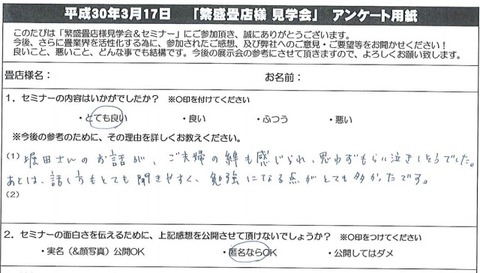 平成30年3月17日 「繁盛畳店様 見学会」 アンケート用紙
このたびは「繁盛畳店様見学会&セミナー」にご参加頂き、誠にありがとうございます。
今後、さらに畳業界を活性化する為に、参加されたご感想、及び弊社へのご意見・ご要望等をお聞かせください!
良いこと、悪いこと、どんな事でも結構です。今後の展示会の参考にさせて頂きますので、よろしくお願い致します。
畳店様名: お名前:
1.セミナーの内容はいかがでしたか? ※○印を付けてください
・とても良い ・良い ・ふつう ・悪い
※今後の参考のために、その理由を詳しくお教えください。
(1) 堀田さんのお話が、ご夫婦の絆も感じられ、思わずもらい泣きしそうでした。
あとは、話し方もとても聞きやすく、勉強になる点がとても多かったです。
(2)
2.セミナーの面白さを伝えるために、上記感想を公開させて頂けないでしょうか? ※○印をつけてください
・実名(&顔写真)公開OK ・匿名ならOK ・公開してはダメ